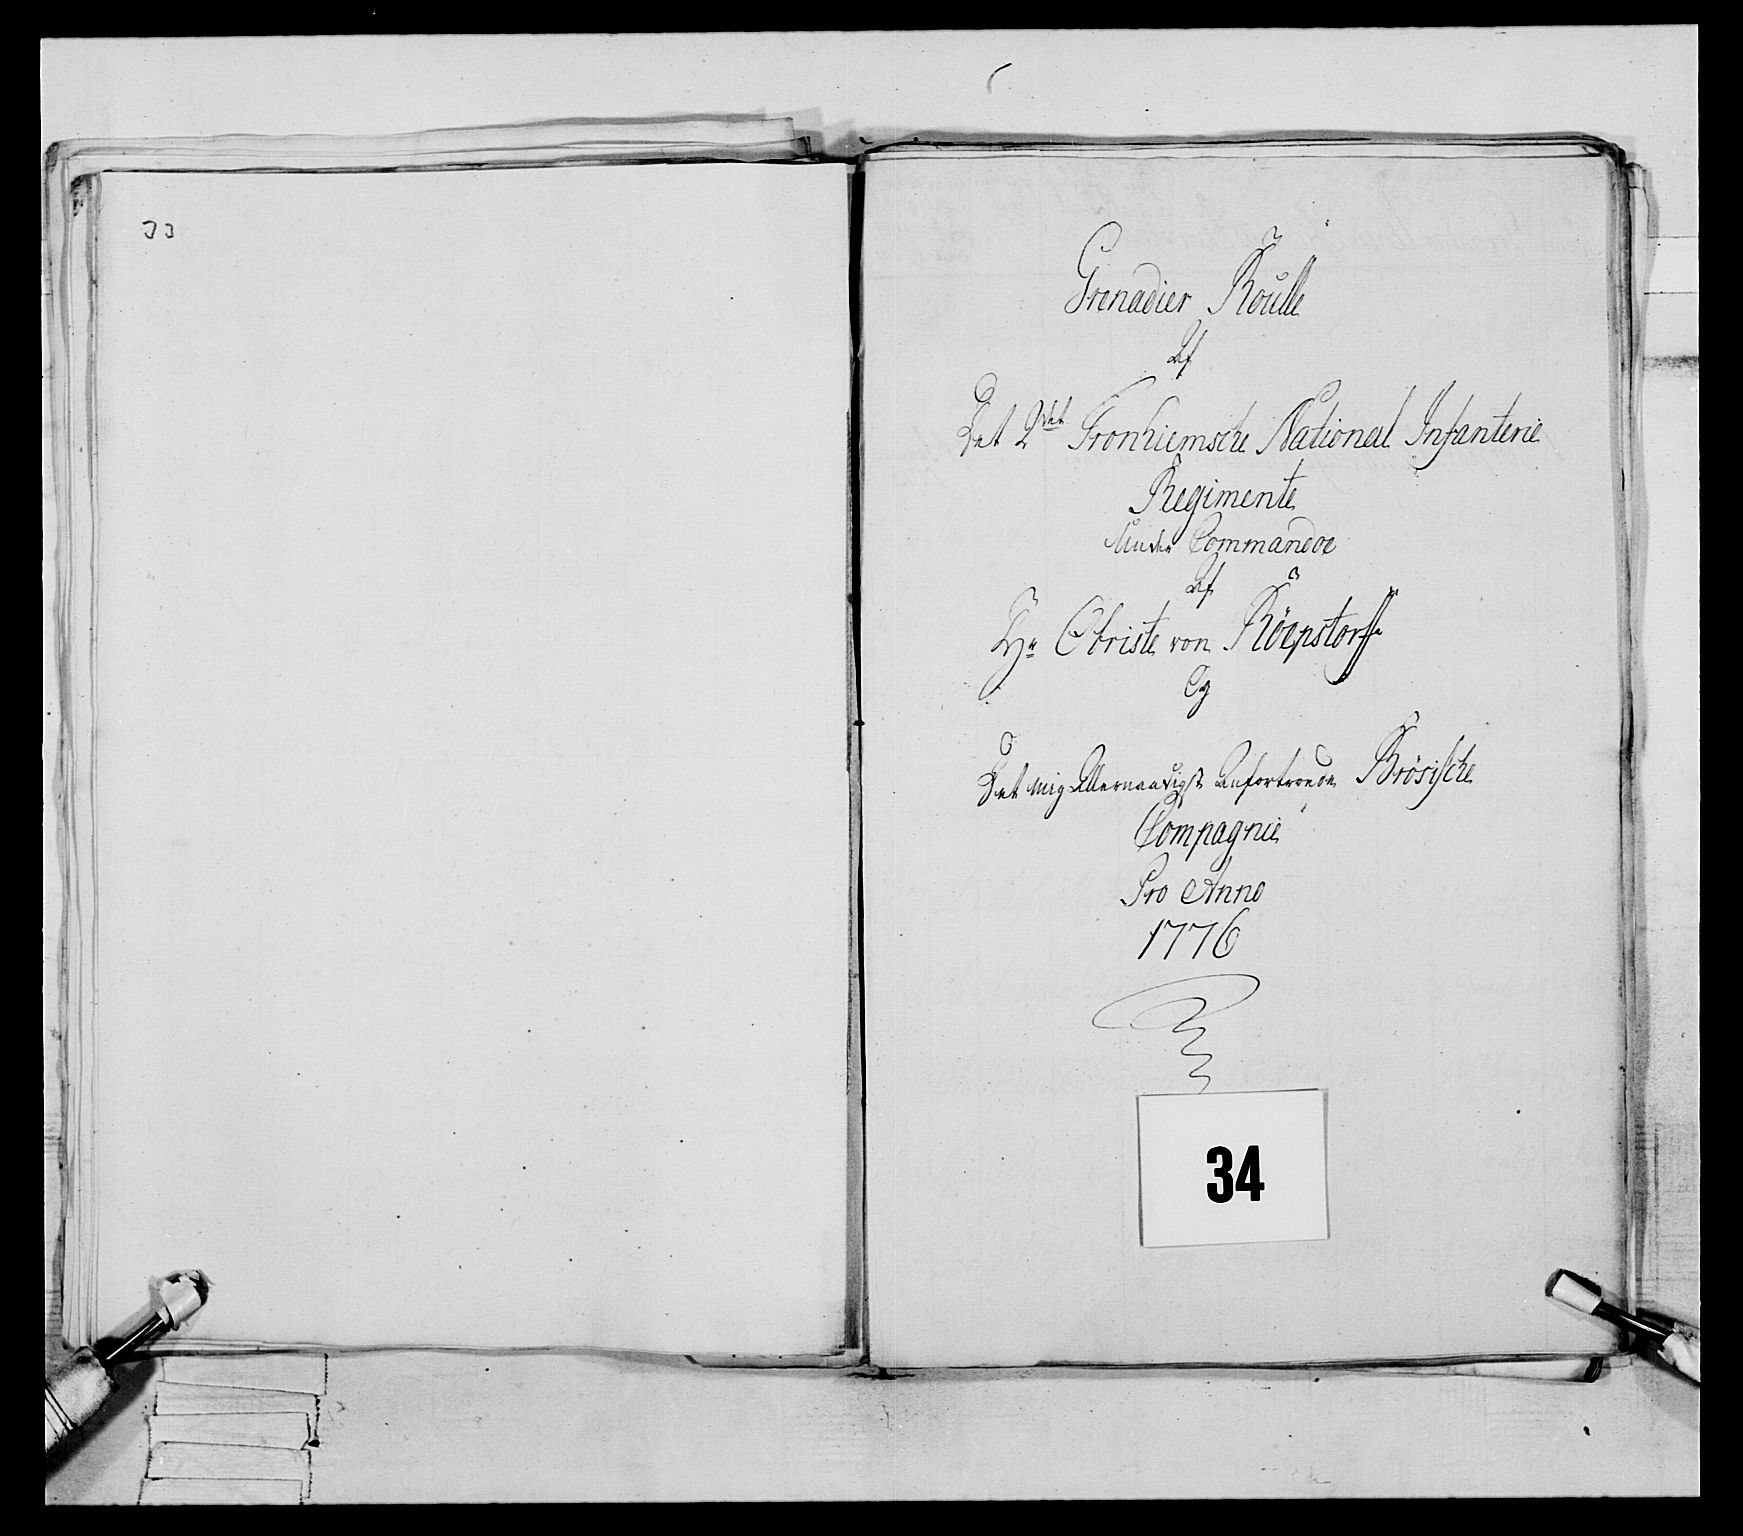 Grenadier Roulle
Af
Det 2det Tronhiemsche National Infanterie
Regimente
Under Commandoe
Af
Hr Obriste von Röepstorff
Og
Det mig Allernaadigst Anfortroede Brösische
Compagnie
Pro Anno
1776
34